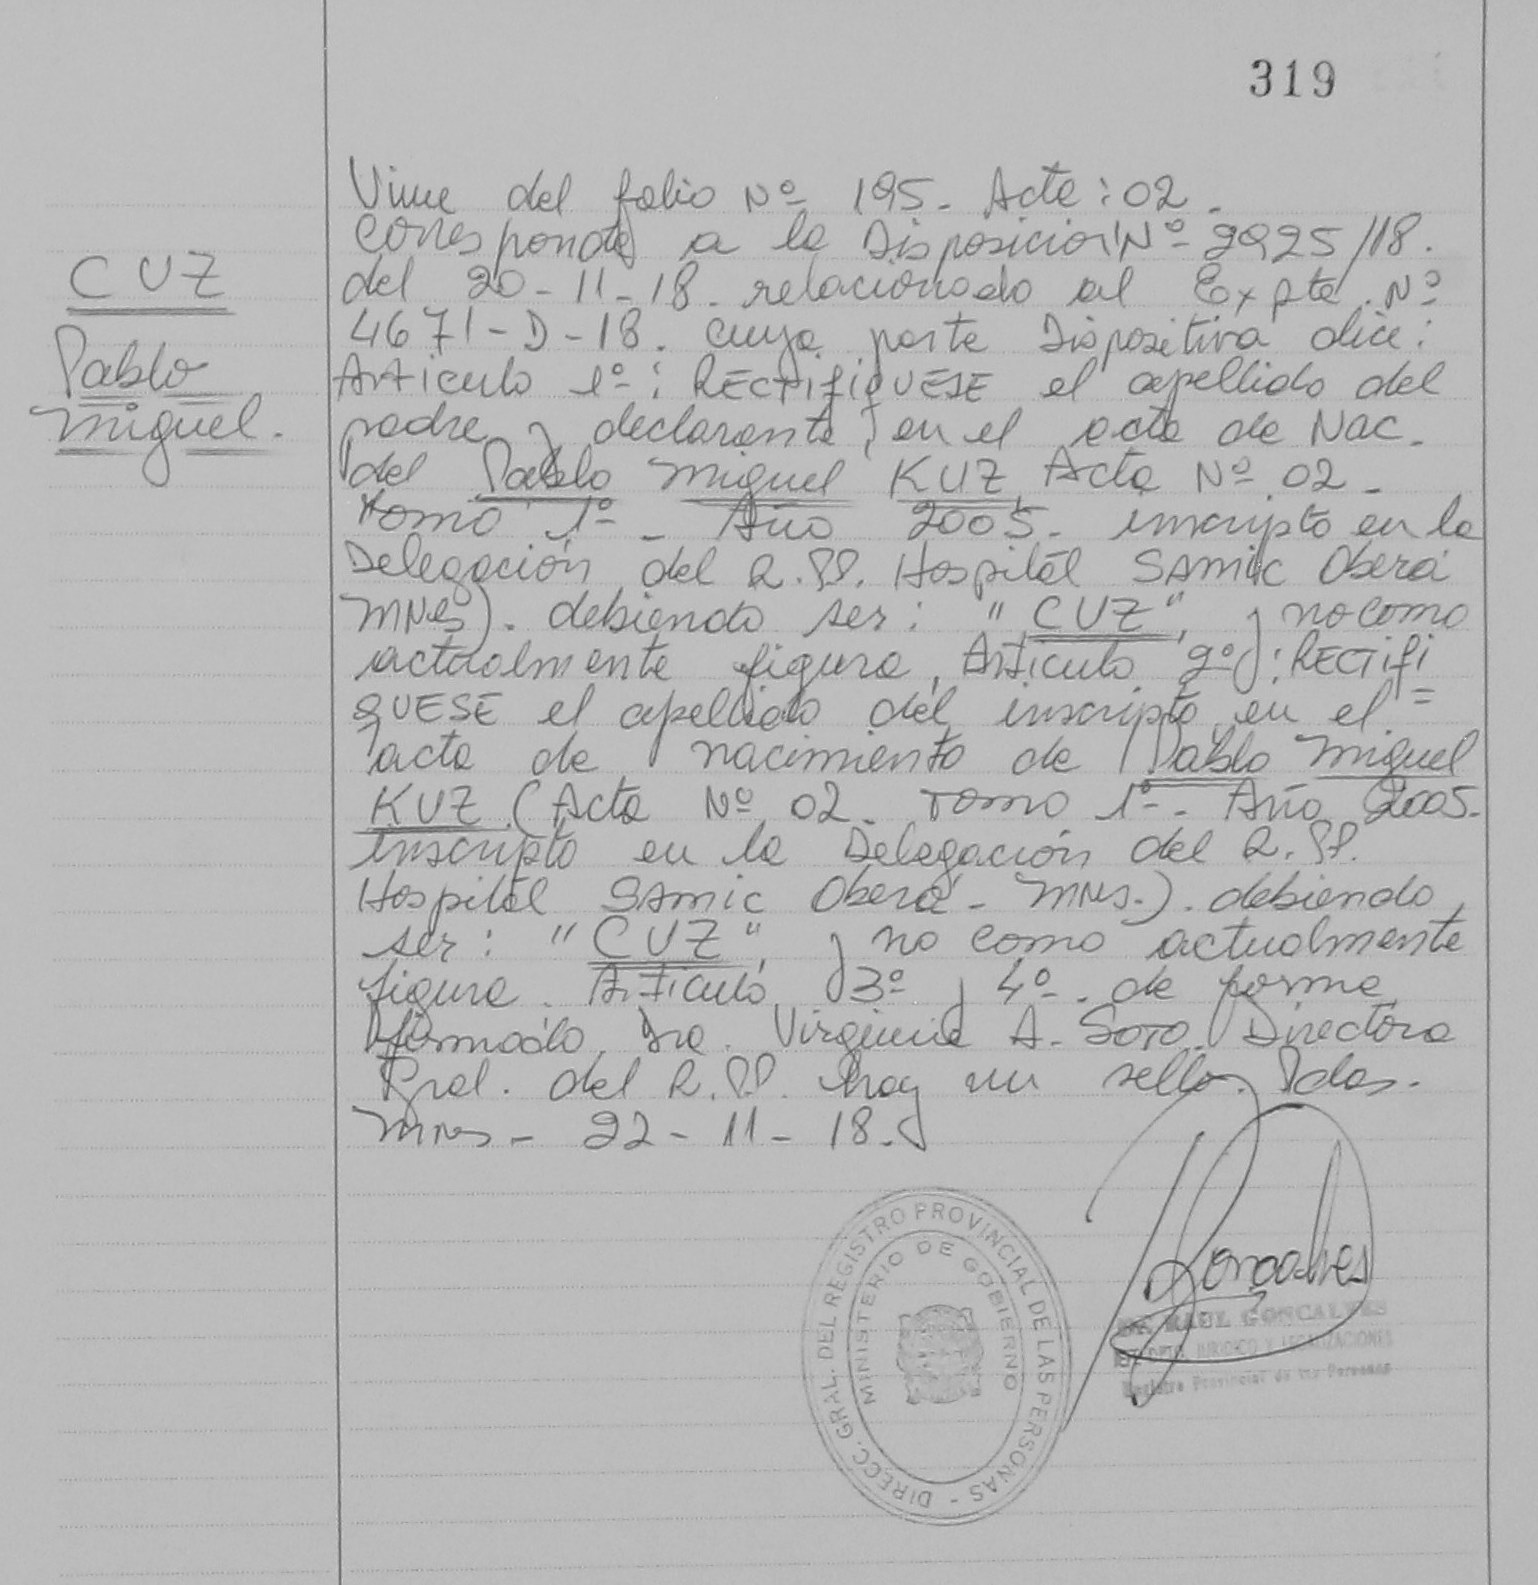 319
CUZ
Pablo
Miguel.
Viene del folio Nº 195. Acta: 02.
Corresponde a la Disposición Nº 2925/18.
del 20-11-18. relacionado al Expte. Nº
4671-D-18. cuya parte Dispositiva dice:
Artículo 1º: RECTIFIQUESE el apellido del
padre y declarante, en el acta de Nac.
del Pablo Miguel KUZ, Acta Nº 02-
Tomo 1º - Año 2005- inscripto en la
Delegación del R.PP. Hospital SAMIC Oberá
MNES). debiendo ser: "CUZ", y no como
actualmente figura, Artículo 2º: RECTIFI
QUESE el apellido del inscripto en el =
acta de nacimiento de Pablo Miguel
KUZ (Acta Nº 02. Tomo 1º- Año 2005-
inscripto en la Delegación del R.PP.
Hospital SAMIC Oberá - MNES.). debiendo
ser: "CUZ", y no como actualmente
figura. Artículo 3º y 4º. de forma.
Firmado Dra. Virginia A. Soto. Directora
Gral. del R.PP. hay un sello. Pdas.
MNES - 22-11-18.
DIRECC. GRAL. DEL REGISTRO PROVINCIAL DE LAS PERSONAS -
MINISTERIO DE GOBIERNO
Goncalves
RAUL GONCALVES
JURIDICO Y LEGALIZACIONES
Registro Provincial de las Personas